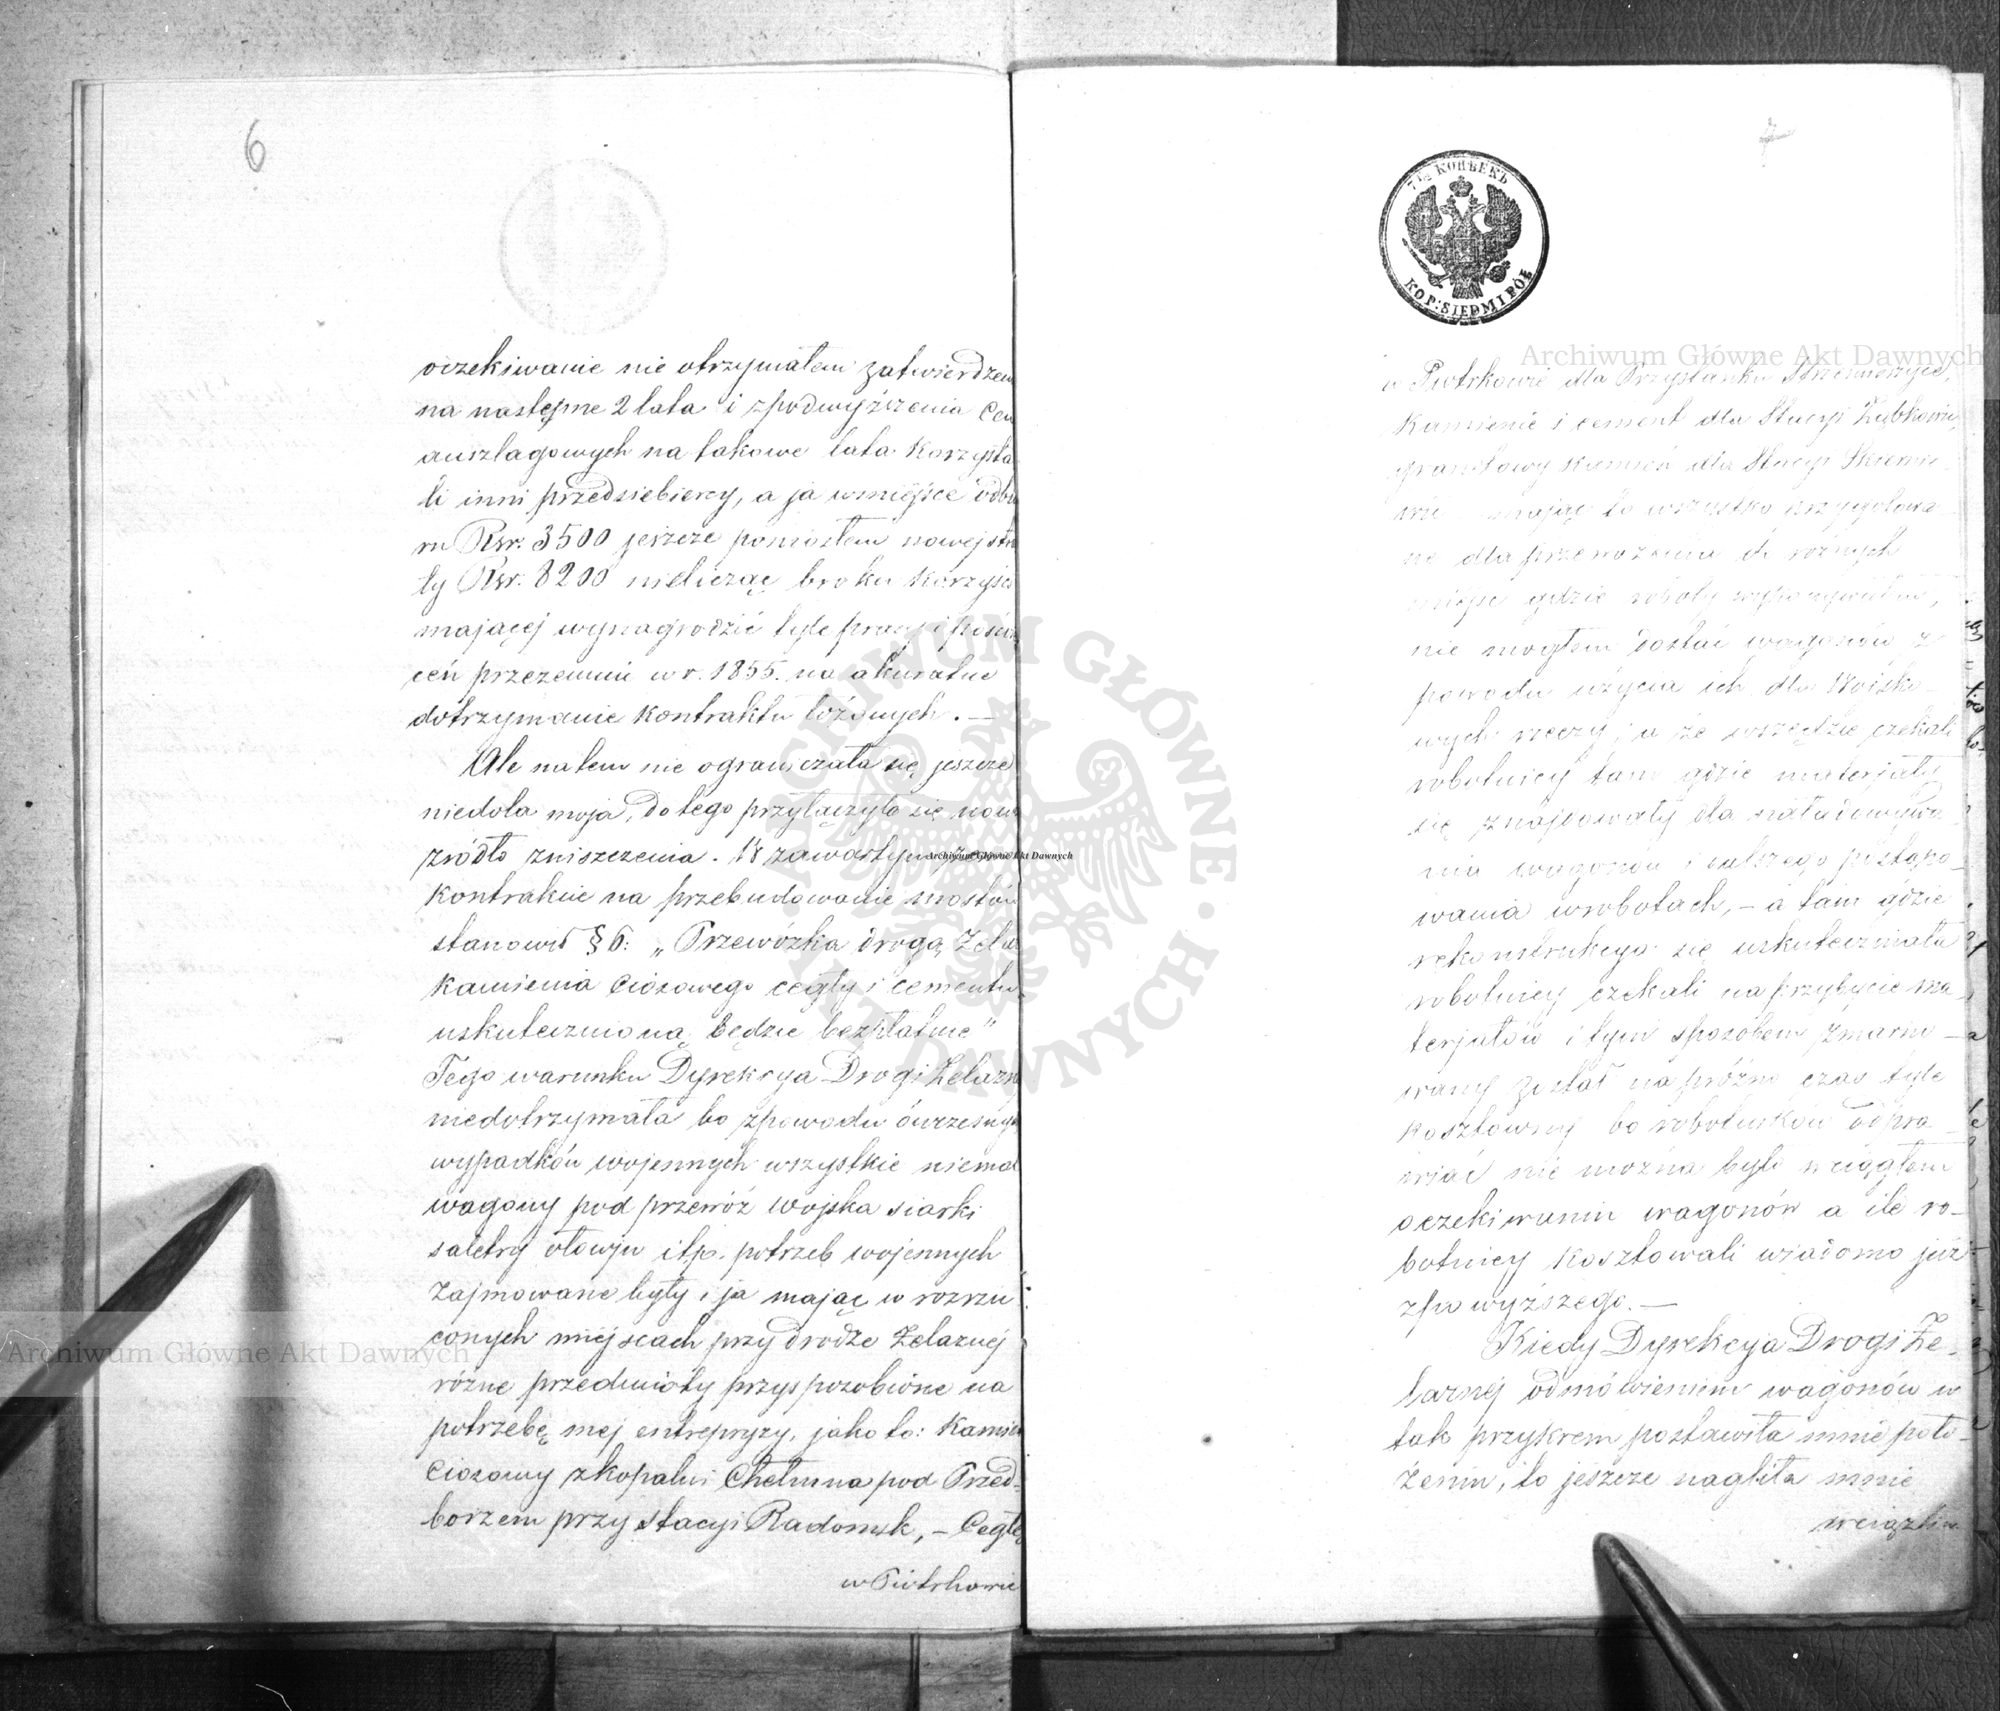 6
oczekiwanie nie otrzymałem zatwierdzen
na następne 2 lata i zpodwyższenia Cen
auszlagowych na takowe lata korzysta
li inni przedsiebiercy, a ja wmiejsce odbio
ru Rsr. 3500 jeszcze poniosłem nowej stra
ty Rsr. 8200 nielicząc braku korzyści
mającej wynagrodzić tyle pracy i poświę
ceń przezemnie w r. 1855. na akuratne
dotrzymanie kontraktu łożonych. —
Ale natem nie ograniczała się jeszcze
niedola moja, do tego przyłączyło się nowe
źródło zniszczenia. W zawartym
kontrakcie na przebudowanie mostów
stanowił § 6: „Przewózka drogą Żela
kamienia ciosowego cegły i cementu
uskutecznioną będzie bezpłatnie"
Tego warunku Dyrekcya Drogi Żelazn
niedotrzymała bo zpowodu ówczesnych
wypadków wojennych wszystkie niemal
wagony pod przewóz wojska siarki
saletry ołowju itp. potrzeb wojennych
zajmowane były i ja mając w rozrzu
conych miejscach przy drodze Żelaznej
różne przedmioty przysposobione na
potrzebę mej entrepryzy, jako to: Kamień
Ciosowy zkopalni Chełmna pod Przed-
borzem przy stacyi Radomsk, — Cegłę
w Piotrkowie
7
7 1/2 КОПѢЕКЪ
KOP: SIEDM I PÓŁ
w Piotrkowie dla Przystanku Strzemieszyce,
Kamienie i cement dla Stacyi Ząbkowic,
granitowy kamień dla Stacyi Skiernie-
wic mając to wszystko przygotowa
ne dla przewożenia do różnych
miejsc gdzie roboty wykonywałem,
nie mogłem dostać wagonów z
powodu użycia ich dla Wojsko-
wych rzeczy; a że wszędzie czekali
robotnicy tam gdzie materjały
się znajdowały dla naładowywa
nia wagonów i dalszego postępo-
wania wrobotach, — a tam gdzie
rekonstrukcya się uskuteczniała
robotnicy czekali na przybycie ma
terjałów i tym sposobem zmarno-
wany został napróżno czas tyle
kosztowny bo robotników odpra-
wiać nie można było wciągłem
oczekiwaniu wagonów a ile ro-
botnicy kosztowali wiadomo już
zpowyższego. —
Kiedy Dyrekcya Drogi Że-
laznej odmówieniem wagonów w
tak przykrem postawiła mnie poło-
żeniu, to jeszcze nagliła mnie
wciąż
Archiwum Główne Akt Dawnych
Archiwum Główne Akt Dawnych
Archiwum Główne Akt Dawnych
ARCHIWUM GŁÓWNE AKT DAWNYCH